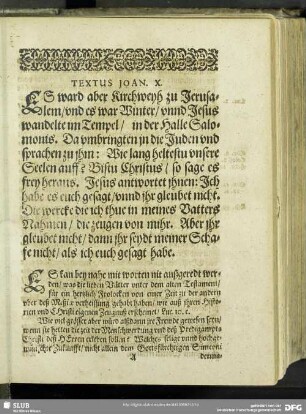 TEXTUS JOAN. X.
ES ward aber Kirchweyh zu Jerusa-
lem/vnd es war Winter/vnnd Jesus
wandelte im Tempel/ in der Halle Salo-
monis. Da vmbringten jn die Juden vnd
sprachen zu jhm: Wie lang heltestu vnsere
Seelen auff? Bistu Christus/ so sage es
frey heraus. Jesus antwortet jhnen: Ich
habe es euch gesagt/vnnd jhr glaubet nicht.
Die wercke die ich thue in meines Vatters
Nahmen/ die zeugen von mihr. Aber jhr
glaubet nicht/ dann jhr seydt meiner Scha-
fe nicht/ als ich euch gesagt habe.
ES kan bey nahe mit worten nit aussgeredt wer-
den/ was die lieben Vätter vnter dem alten Testament/
für ein herzlich frolocken von einer Zeit zu der andern
vber des Messiæ verheissung gehabt haben/ wie auß ihren Histo-
rien vnd Christi eigenen Zeugnuß erscheinet/ Luc. 10. c.
Wie viel grösser aber würd alsdann jre Freude gewesen seyn/
wenn sie hetten die zeit der Menschwerdung vnd deß Predigampts
Christi deß HErren erleben sollen? Welches selige vnnd hochge-
wünschte Zukunfft/ nicht allein dem Gottsfürchtigen Simeon/
A
SLUB
DFG